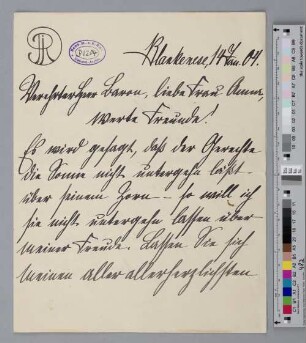 Blankenese, 14 Jan. 04.
Verehrter Herr Baron, liebe Frau Anna,
werte Freunde!
Es wird gesagt, daß der Gerechte
die Sonne nicht untergehn läßt
über seinem Zorn – so will ich
sie nicht untergehn lassen über
meiner Freude. Lassen Sie sich
meinen aller allerherzlichsten